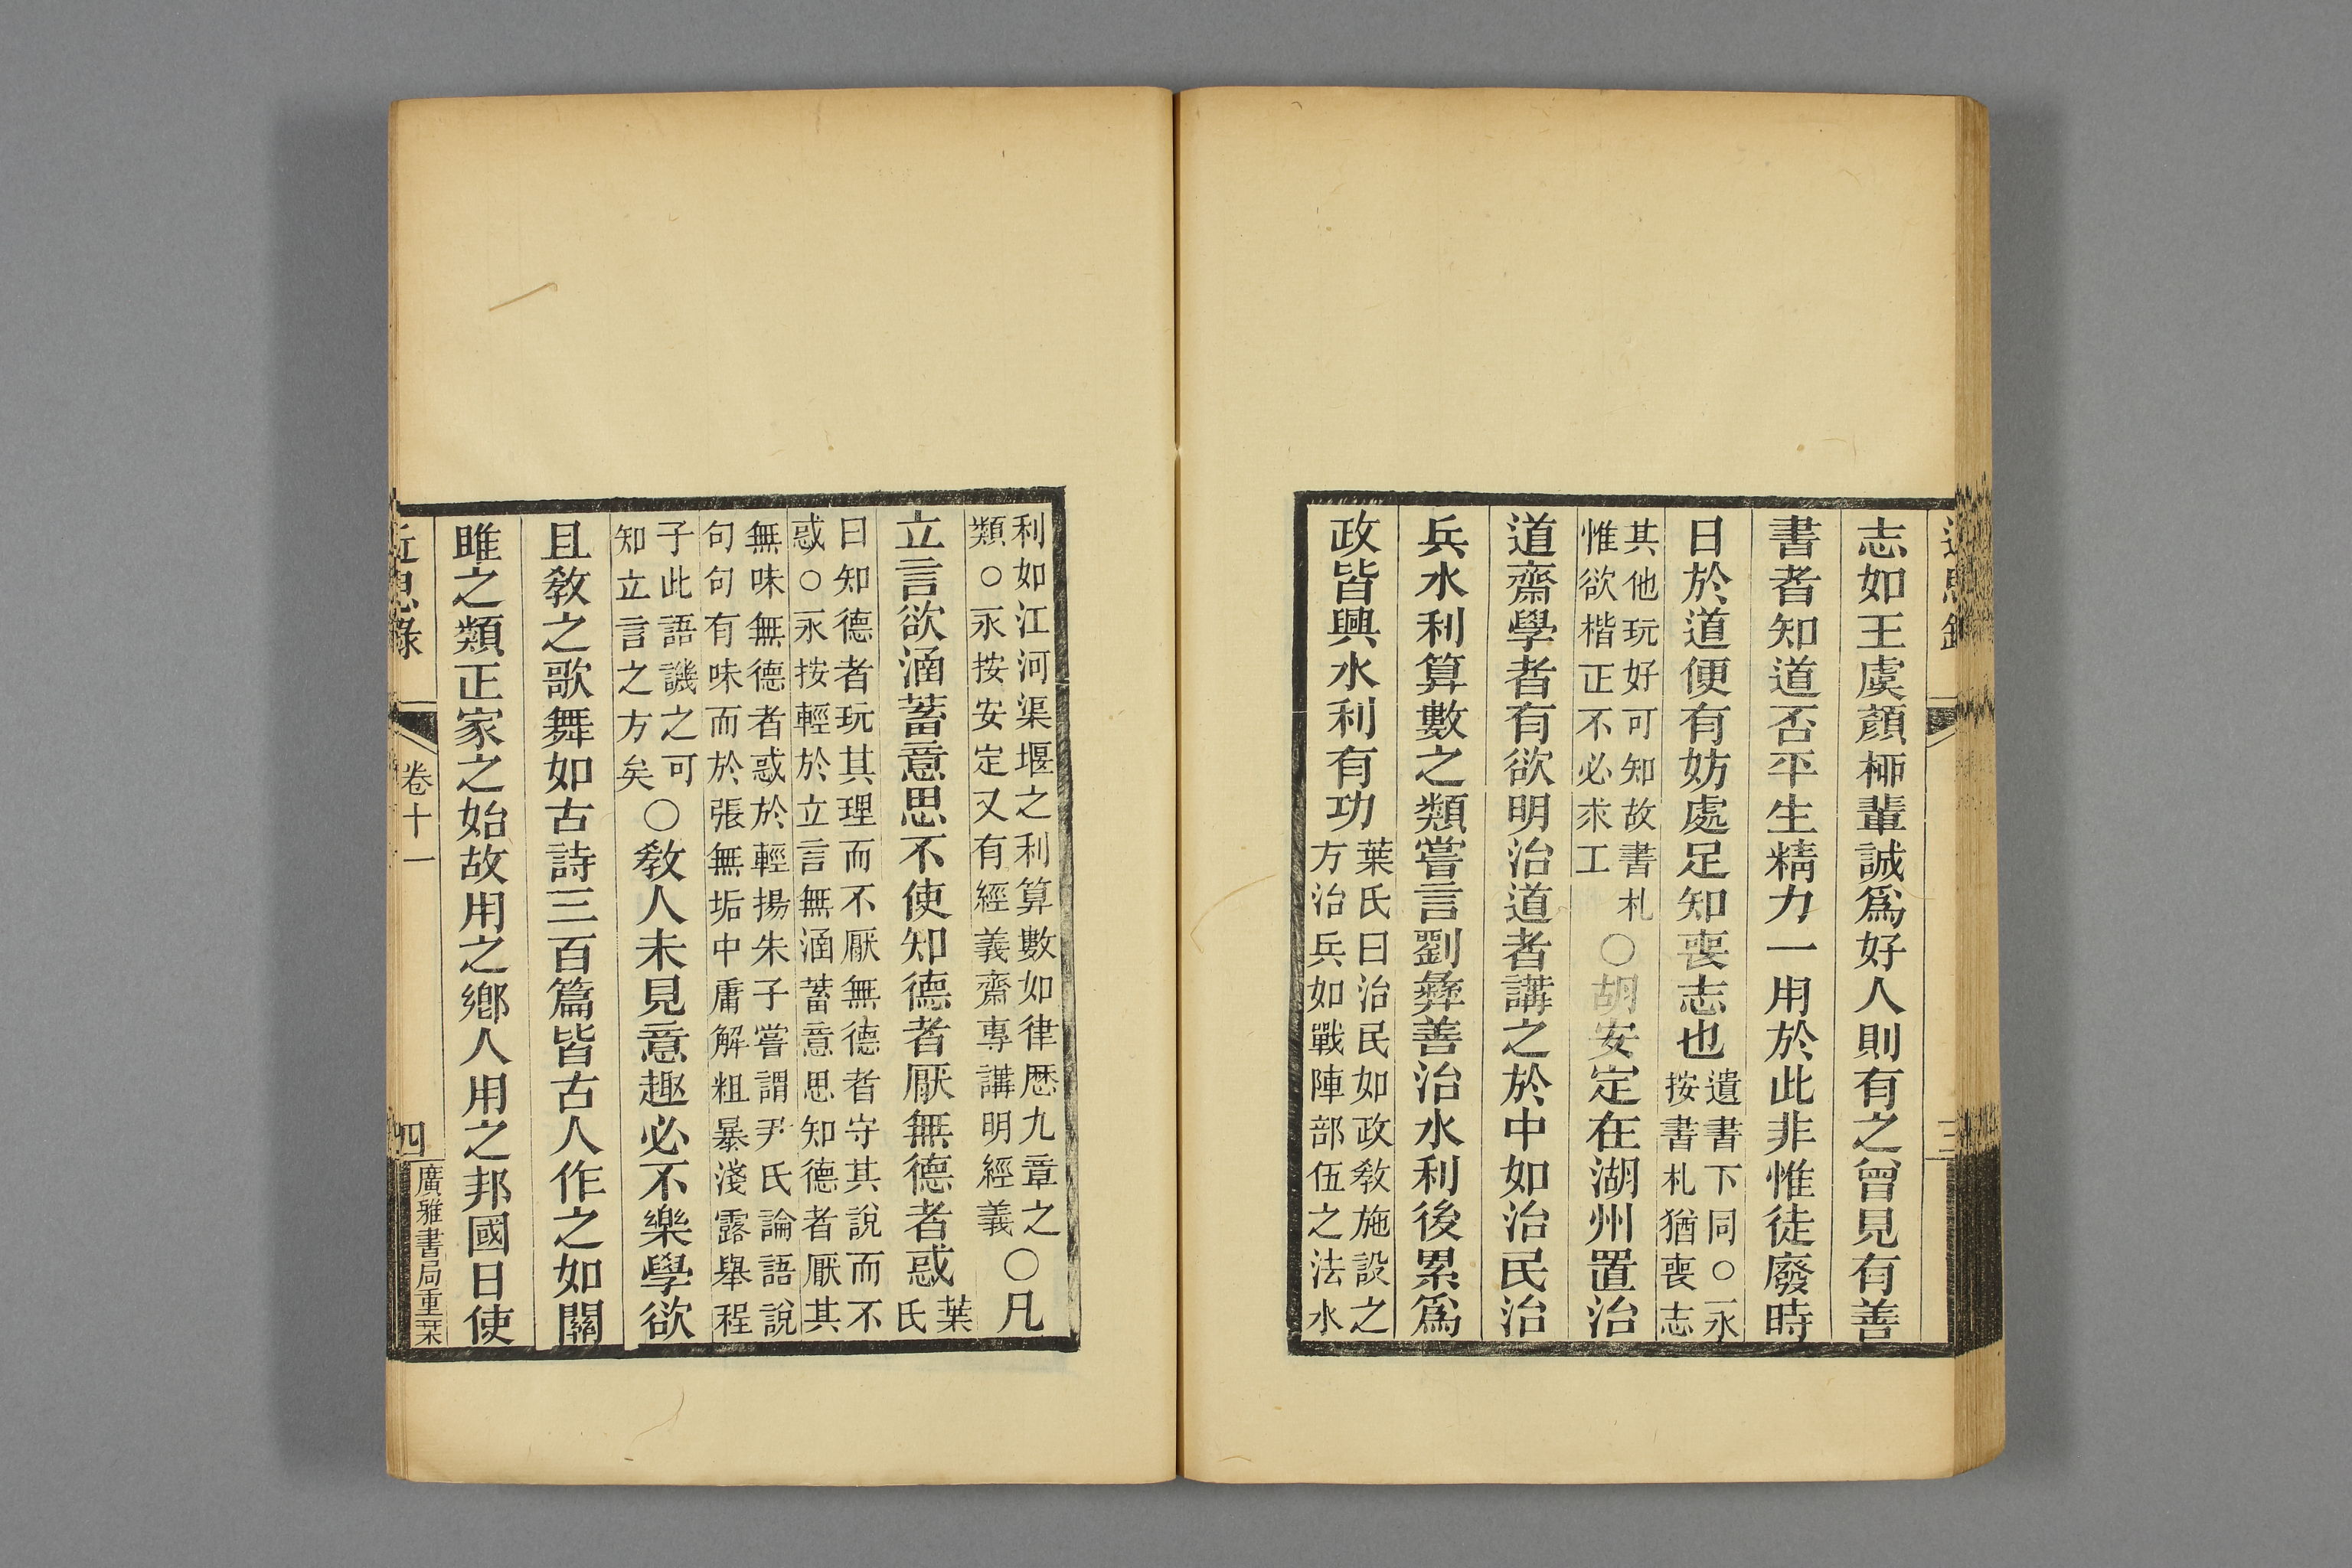 志如王虞顔栁輩誠爲好人則有之曾見有善
書者知道否平生精力一用於此非惟徒廢時
日於道便有妨處足知喪志也
遺書下同○永
按書札猶喪志
其他玩好可知故書札
惟欲楷正不必求工
○胡安定在湖州置治
道齋學者有欲明治道者講之於中如治民治
兵水利算數之類嘗言劉彝善治水利後累爲
政皆興水利有功
葉氏曰治民如政敎施設之
方治兵如戰陣部伍之法水
利如江河渠堰之利算數如律歴九章之
類○永按安定又有經義齋專講明經義
○凡
立言欲涵蓄意思不使知德者厭無德者惑
葉
氏
曰知德者玩其理而不厭無德者守其說而不
惑○永按輕於立言無涵蓄意思知德者厭其
無味無德者惑於輕揚朱子嘗謂尹氏論語說
句句有味而於張無垢中庸解粗暴淺露舉程
子此語譏之可
知立言之方矣
○敎人未見意趣必不樂學欲
且敎之歌舞如古詩三百篇皆古人作之如關
雎之類正家之始故用之鄕人用之邦國日使
近思錄
卷十一
四
廣雅書局重栞